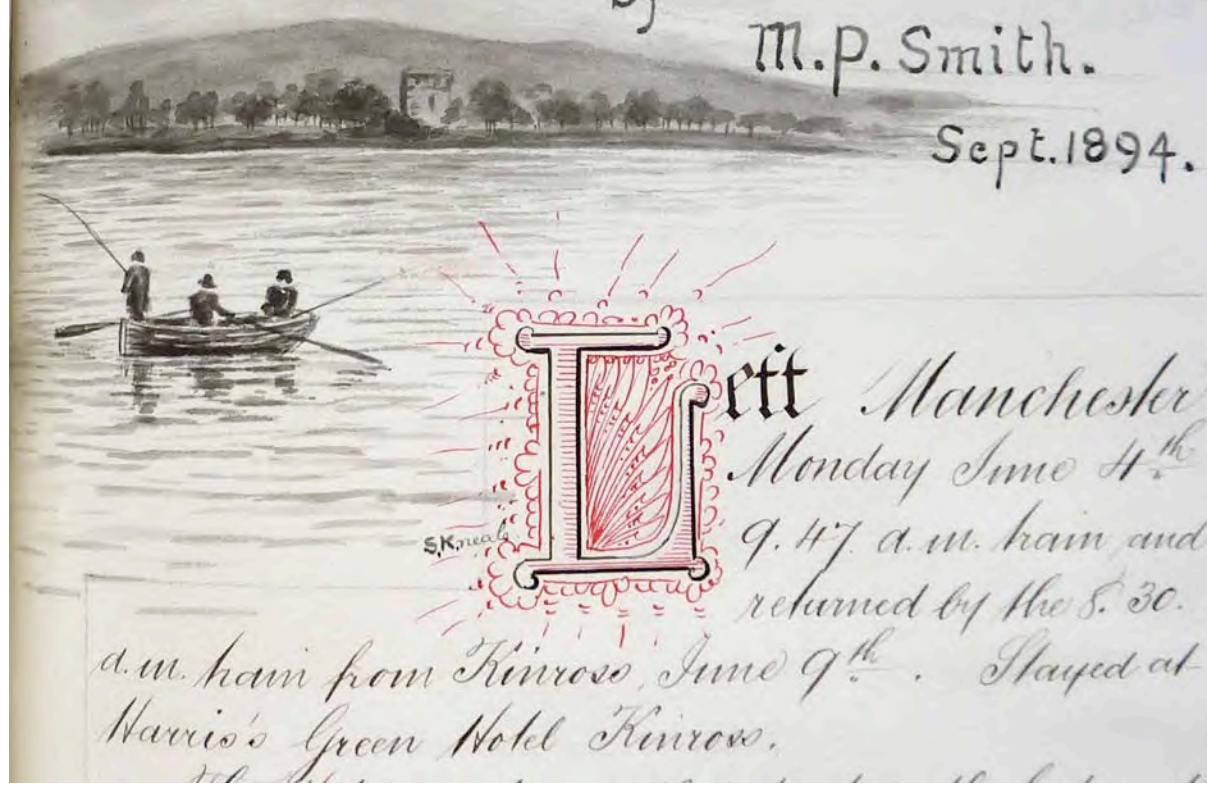 by
M.P. Smith.
Sept. 1894.
Left Manchester
Monday June 4th
9.47. a.m. train and
S.K.neale
returned by the 8.30.
a.m. train from Kinross, June 9th. Stayed at
Harris's Green Hotel Kinross.